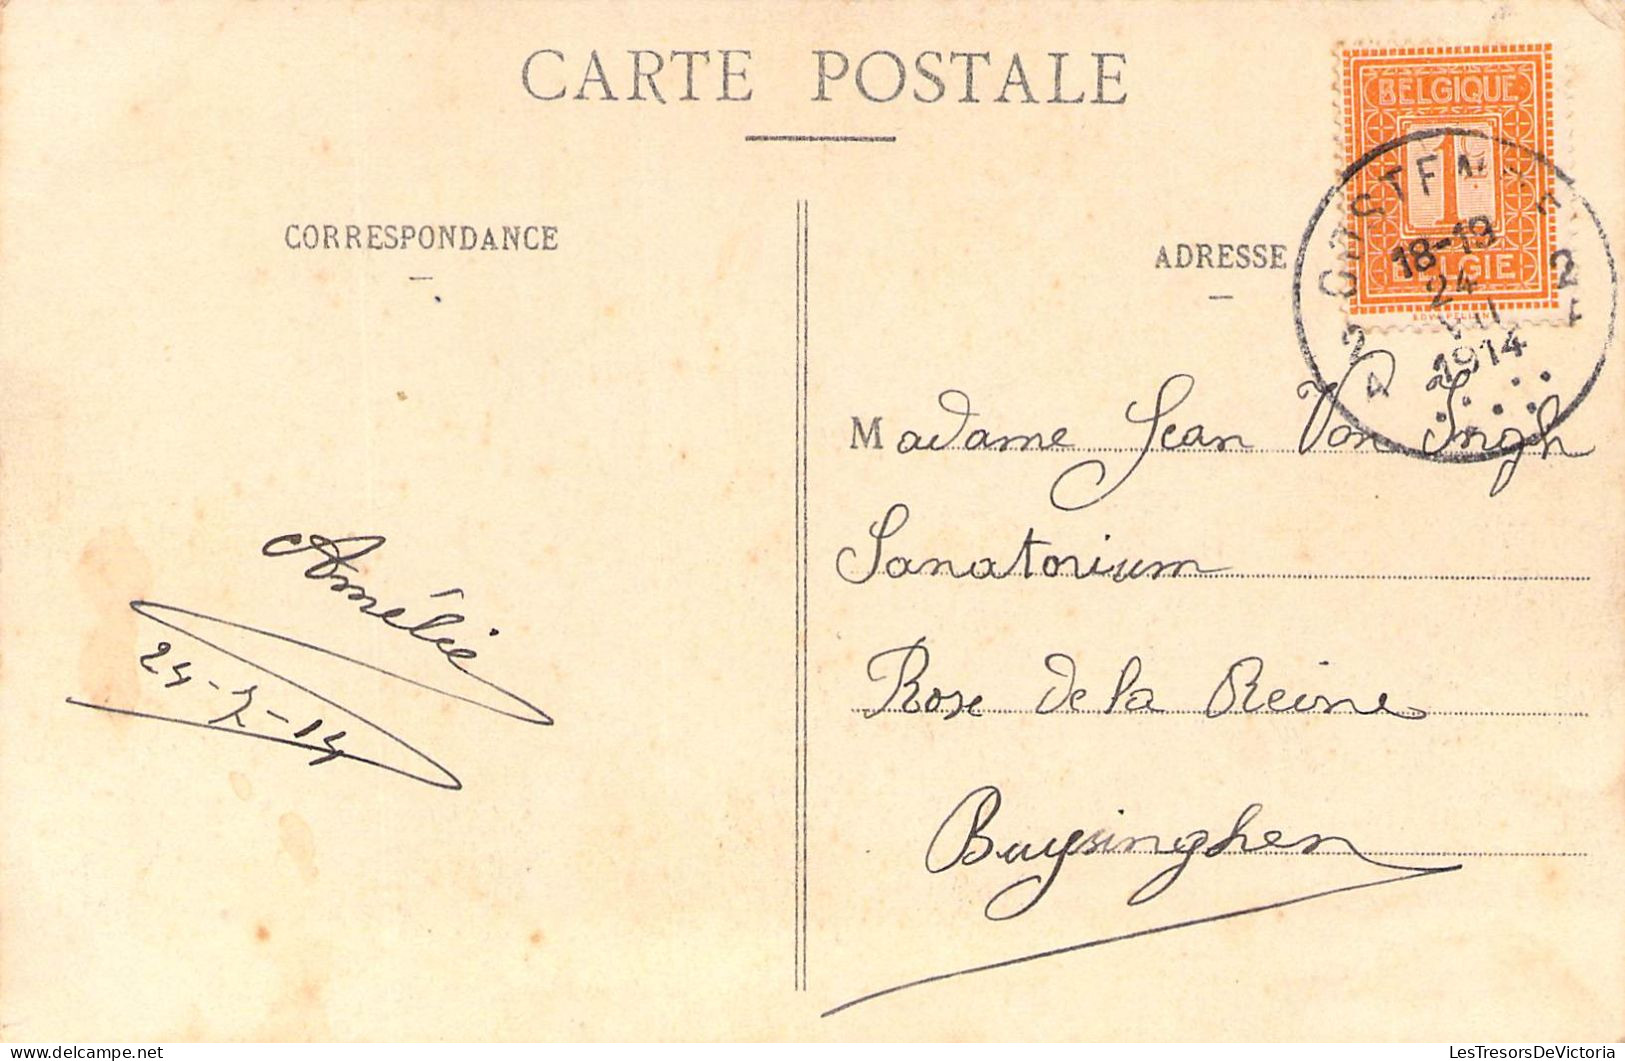 CARTE POSTALE
CORRESPONDANCE
ADRESSE
BELGIQUE
1
BELGIE
18-19
24
VII
1914
2 A
Madame Jean Van Ingh
Sanatorium
Rose de la Reine
Buysinghen
Amélie
24-7-14
LesTresorsDeVictoria